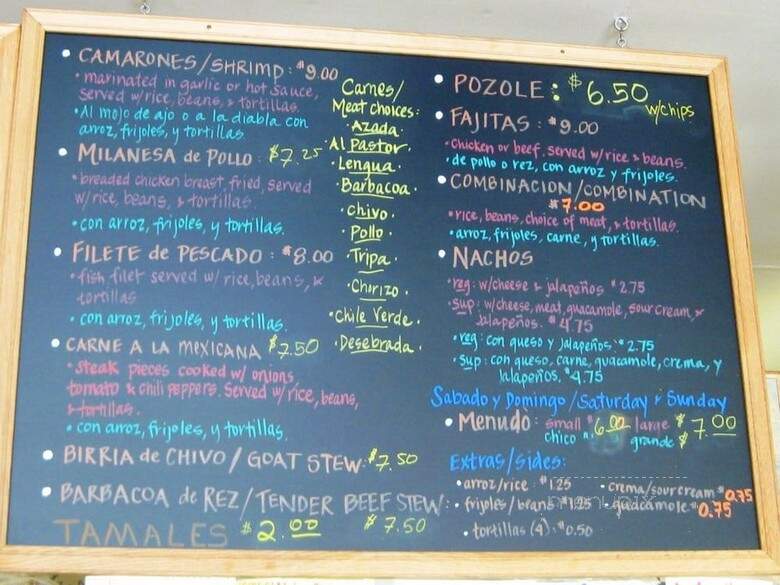 • CAMARONES/SHRIMP: $9.00
• marinated in garlic or hot sauce,
served w/rice, beans, & tortillas.
• Al mojo de ajo o a la diabla con
arroz, frijoles, y tortillas.
• MILANESA de POLLO: $7.25
• breaded chicken breast, fried, served
w/rice, beans, & tortillas.
• con arroz, frijoles, y tortillas.
• FILETE de PESCADO: $8.00
• fish filet served w/ rice, beans, &
tortillas
• con arroz, frijoles, y tortillas.
• CARNE A LA MEXICANA $7.50
• steak pieces cooked w/ onions,
tomato & chili peppers. Served w/ rice, beans,
& tortillas.
• con arroz, frijoles, y tortillas.
• BIRRIA de CHIVO / GOAT STEW: $7.50
• BARBACOA de REZ/TENDER BEEF STEW:
$7.50
TAMALES $2.00
Carnes/
Meat choices:
• Azada •
• Al Pastor •
• Lengua •
• Barbacoa •
• Chivo •
• Pollo •
• Tripa •
• Chirizo •
• Chile Verde •
• Desebrada •
• POZOLE: $6.50
w/chips
• FAJITAS: $9.00
• Chicken or beef, served w/rice & beans.
• de pollo o rez, con arroz y frijoles.
• COMBINACION/COMBINATION
$7.00
• rice, beans, choice of meat, & tortillas.
• arroz, frijoles, carne, y tortillas.
• NACHOS
• reg: w/cheese & jalapeños $2.75
• sup: w/cheese, meat, guacamole, sour cream, &
jalapeños. $4.75
• reg: con queso y jalapeños. $2.75
• sup: con queso, carne, guacamole, crema, y
jalapeños. $4.75
Sabado y Domingo/Saturday & Sunday
• Menudo: small $6.00 large $7.00
chico grande $
Extras/sides:
• arroz/rice: $1.25
• frijoles/beans $1.25
• tortillas (4): $0.50
• crema/sour cream $0.75
• guacamole: $0.75